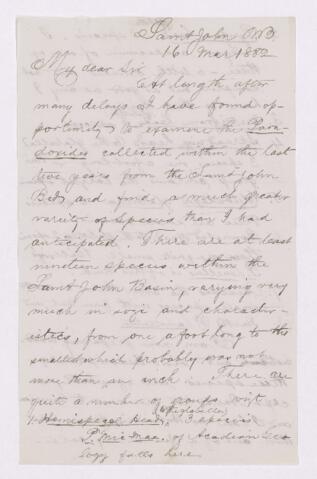 Saint John N.B.
16 Mar 1882
My dear Sir
At length after
many delays I have found op-
portunity to examine the Para-
doxides collected within the last
five years from the Saint John
Beds and find a much greater
variety of species than I had
anticipated. There are at least
nineteen species within the
Saint John Basin, varying very
much in size and character-
istics, from one a foot long to the
smallest which probably was not
more than an inch. There are
quite a number of groups viz
1. Hemispheric Head, 3 species
P. Mic Mac, of Acadian Geo
logy falls here